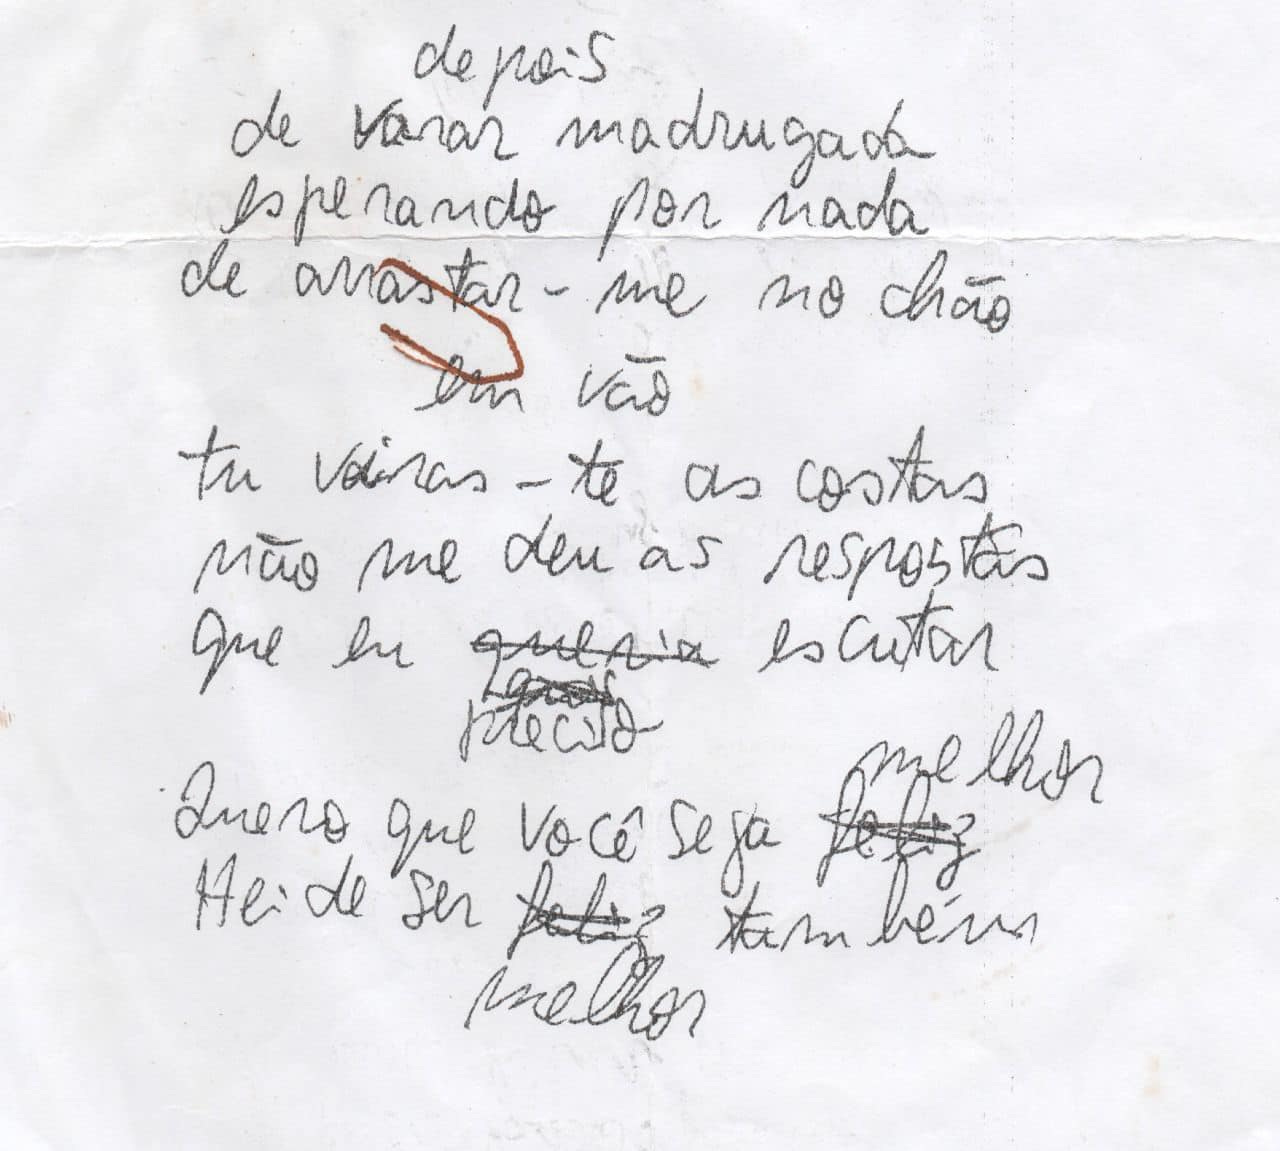 depois
de varar madrugada
esperando por nada
de arrastar-me no chão
em vão
tu viras-te as costas
não me deu as respostas
que eu queria escutar
preciso
melhor
Quero que você seja feliz
Hei de ser feliz também
melhor